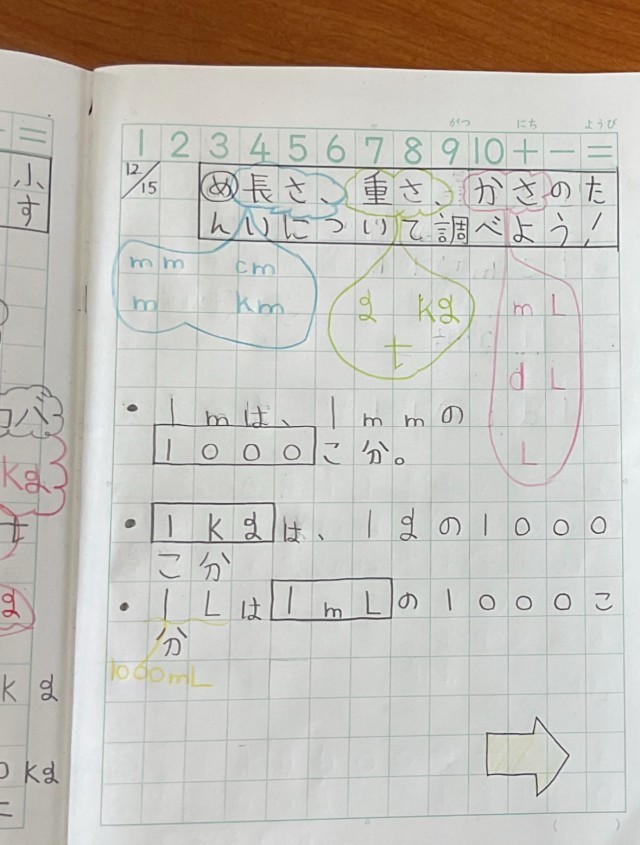 がつ にち ようび
1 2 3 4 5 6 7 8 9 10 + - =
12/15
め 長さ、重さ、かさのた
んいについて調べよう!
mm cm
m km
g kg
t
mL
dL
L
・1mは、1mmの
1000こ分。
・1kgは、1gの1000
こ分
・1Lは1mLの1000こ
分
1000mL
小
す
kg
t
g
k g
kg